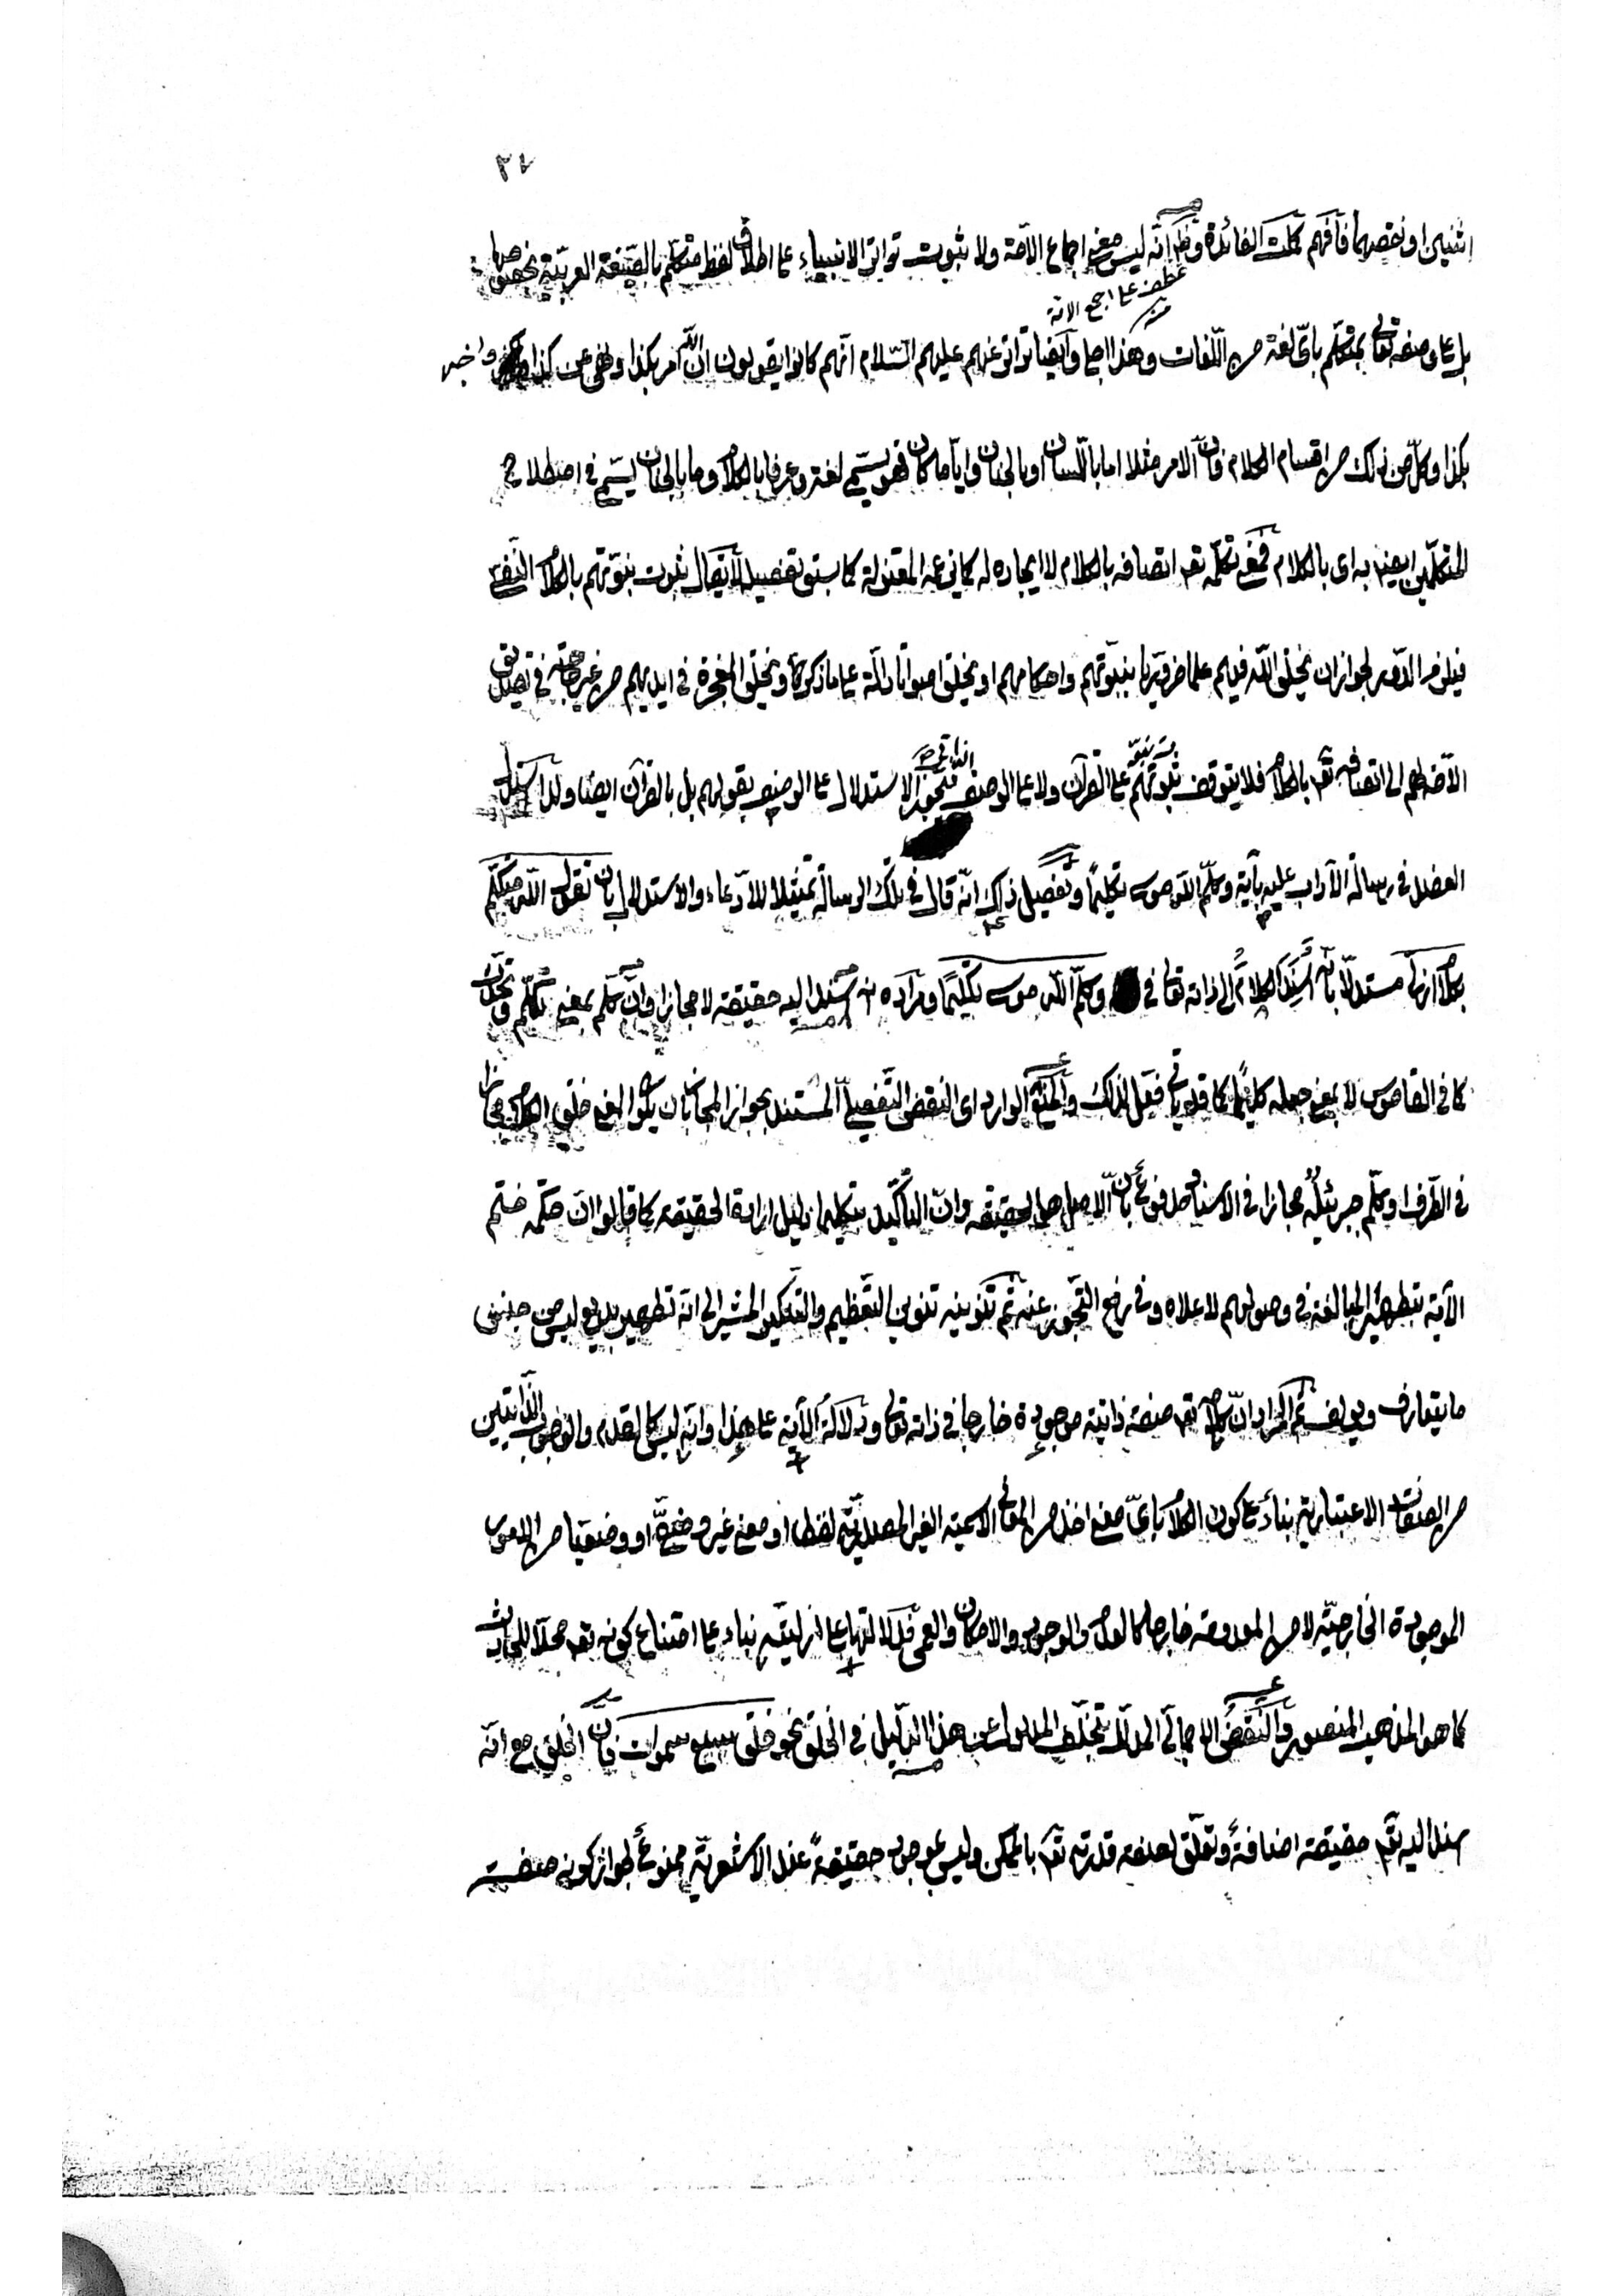 ٢٧
اثنين او نقصهما فافهم تلك الفائدة وظهر انه ليس معنى اجماع الأمة ولا ثبوت تواتر الانبياء على اطلاق لفظ متكلم بالصيغة العربية بخصوصها
عطف على اجمع الامة
بل على وصفه تعالى بمتكلم بأى لغة من اللغات وهذا اجماع وايضا تواتر عنهم عليهم السلام انهم كانوا يقولون ان الله امر بكذا ونهى عن كذا واخبر
بكذا وكل من ذلك من اقسام الكلام فان الامر مثلا اما باللسان او بالجنان وايا ما كان فهو يسمى لغة وعرفا بالكلام وما بالجنان يسمى فى اصطلاح
المتكلمين ايضا به اى بالكلام فمعنى تكلمه تعـ اتصافه بالكلام لا ايجاده له كما زعمه المعتزلة كما سبق تفصيله لا يقال ثبوت نبوتهم بالكلام النفسى
فيلزم الدور لجواز ان يخلق الله فيهم علما ضروريا بنبوتهم واحكامهم او يخلق اصواتا دالة على ما ذكر او يخلق المعجزة فى ايديهم من غير حاجة فى تصديق
الأمة لهم الى اتصافه تعـ بالكلام فلا يتوقف ثبوتهم على القرآن ولا على الوصف فيجوز الاستدلال على الوصف بقولهم بل بالقرآن ايضا ولذا استدل
العضد فى رسالة الآداب عليه بآية وكلم الله موسى تكليما وتفصيل ذلك انه قال فى تلك الرسالة تمثيلا للادعاء والاستدلال بان تقول الله متكلم
بكلام ازلى مستدلا بأنه أسند الكلام الى ذاته تعالى فى وكلم الله موسى تكليما ومراده انه اسند اليه حقيقة لا مجازا وان كلم بمعنى تكلم وتحدث
كما فى القاموس لا بمعنى جعله كليما كما قد يأتى فعل لذلك والمنع الوارد اى النقض التفصيلى المستند بجواز المجاز بان يكون المعنى خلق الكلام مجازا
فى الطرف او كلم جبرئيله مجازا فى الاسناد مدفوع بأن الاصل هى الحقيقة وان التأكيد بتكليما دليل ارادة الحقيقة كما قالوا ان حكمة ختم
الآية بتطهيرا المبالغة فى وصولهم لاعلاه وفى رفع التجوز عنه ثم تنوينه تنوين التعظيم والتكثير المشير الى انه تطهير بديع ليس من جنس
ما يتعارف ويؤلف ثم المراد ان كلامه تعـ صفة ذاتية موجودة خارجا فى ذاته تعالى ودلالة الآية على هذا وانه ليس كالقدم والوجوب الذاتيين
من الصفات الاعتبارية بناء على كون الكلام بأى معنى اخذ من المعانى الاسمية الغير المصدرية لفظا او معنى غير وضعى او وضعيا من الامور
الموجودة الخارجية لا من المعدومة خارجا كالعدم والوجوب والامكان والعمى فدلالتها على ازليته بناء على امتناع كونه تعـ محلا للحوادث
كما هو المذهب المنصور والنقض الاجمالى المدلل بتخلف المدلول عن هذا الدليل فى الخلق نحو خلق سبع سموات فان الخلق مع انه
اسند اليه تعـ حقيقة اضافة وتعلق لصفة قدرته تعـ بالممكن وليس بموجود حقيقة عند الاشعرية ممنوع لجواز كونه صفة